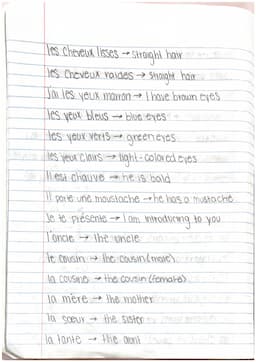 les cheveux lisses → straight hair
les cheveux raides → straight hair
J'ai les yeux marron → I have brown eyes
les yeux bleus → blue eyes
les yeux verts → green eyes
les yeux clairs → light-colored eyes
Il est chauve → he is bald
Il porte une moustache → he has a mustache
Je te présente → I am introducing to you
l'oncle → the uncle
le cousin → the cousin (male)
la cousine → the cousin (female)
la mère → the mother
la sœur → the sister
la tante → the aunt